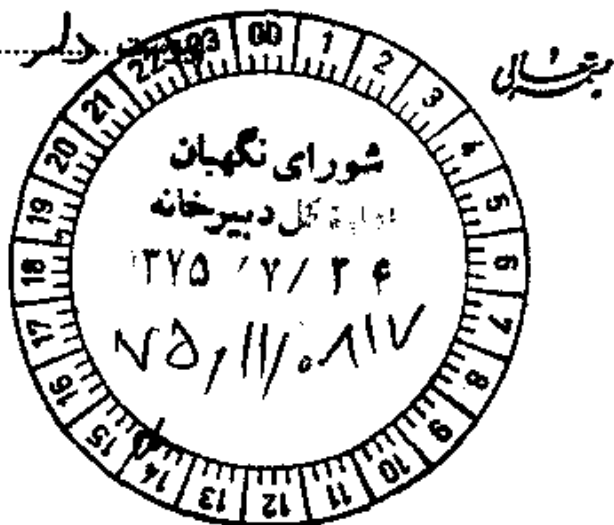 بسمه تعالی
00 1 2 3 4 5 6 7 8 9 10 11 12 13 14 15 16 17 18 19 20 21 22 23
شورای نگهبان
اداره کل دبیرخانه
۱۳۷۵ / ۷ / ۲۴
۷۵/۱۱/۰۸۱۷